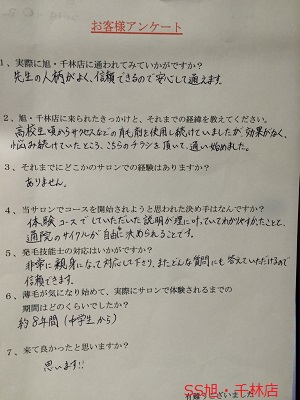 お客様アンケート
1、実際に旭・千林店に通われてみていかがですか？
先生の人柄がよく、信頼できるので安心して通えます。
2、旭・千林店に来られたきっかけと、それまでの経緯を教えてください。
高校生頃からサクセスなどの育毛剤を使用し続けていましたが、効果がなく、
悩み続けていたところ、こちらのチラシを頂いて、通い始めました。
3、それまでにどこかのサロンでの経験はありますか？
ありません。
4、当サロンでコースを開始されようと思われた決め手はなんですか？
体験コースでしていただいた説明が理に叶っていてわかりやすかったことと、
通院のサイクルが自由に決められることです。
5、発毛技能士の対応はいかがですか？
非常に親身になって対応して下さり、またどんな質問にも答えていただけるので
信頼できます。
6、薄毛が気になり始めて、実際にサロンで体験されるまでの
期間はどのくらいでしたか？
約8年間（中学生から）
7、来て良かったと思いますか？
思います!!
SS旭・千林店